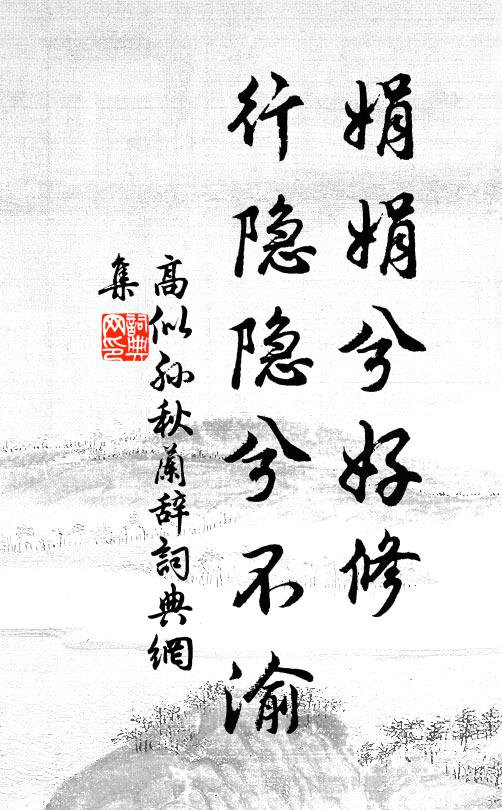 娟娟兮好修
行隐隐兮不渝
高似孙秋蘭辞詞典網
集
詞典
网印